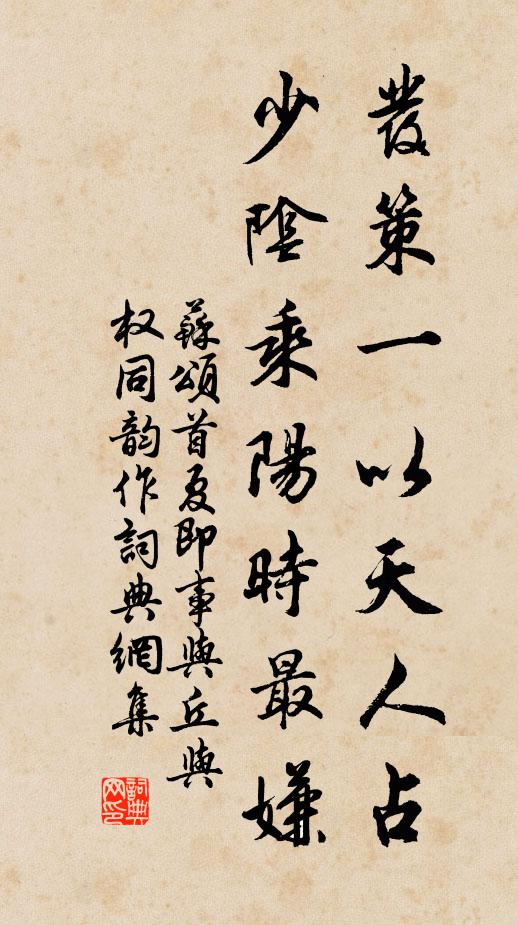 發策一以天人占
少陰乘陽時最嫌
蘇頌首夏即事與丘與
权同韵作詞典網集
詞典
网印